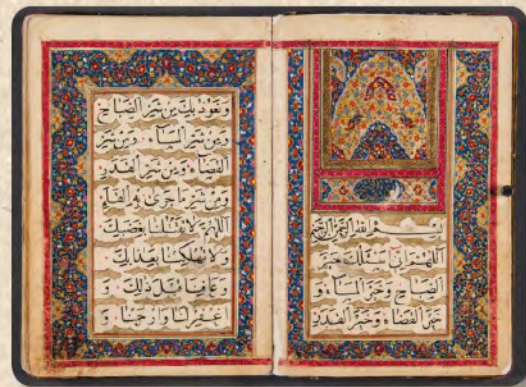 بسم الله الرحمن الرحیم
اللهم انی اسئلك خیر
الصباح وخیر المساء و
خیر القضاء وخیر القدر
ونعوذ بك من شر الصباح
ومن شر المساء ومن شر
القضاء ومن شر القدر
ومن شر ما جری به القلم
اللهم لا تقتلنا بغضبك
ولا تهلكنا بعذابك
وعافنا قبل ذلك و
اغفر لنا وارحمنا و